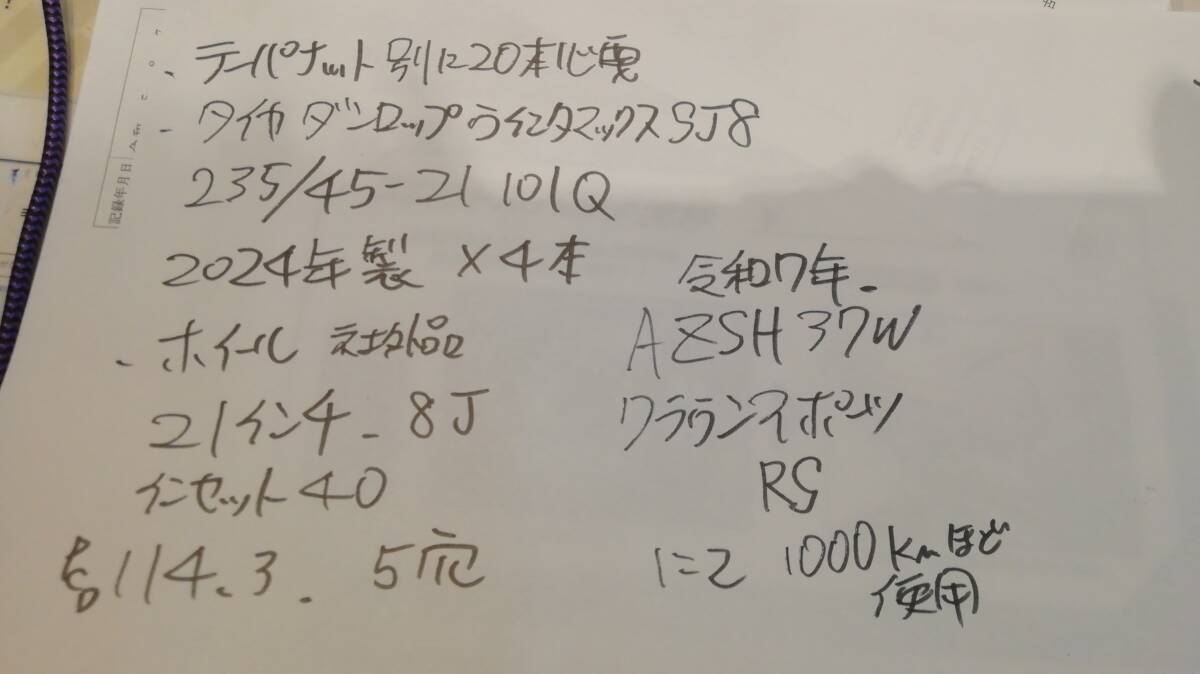 ・テーパナット別に20本必要
・タイヤ ダンロップウインタマックスSJ8
235/45-21 101Q
2024年製 ×4本
・ホイール 社外品
21インチ-8J
インセット40
114.3. 5穴
令和7年.
AZSH37W
クラウンスポーツ
RS
にて 1000kmほど
使用
記録年月日